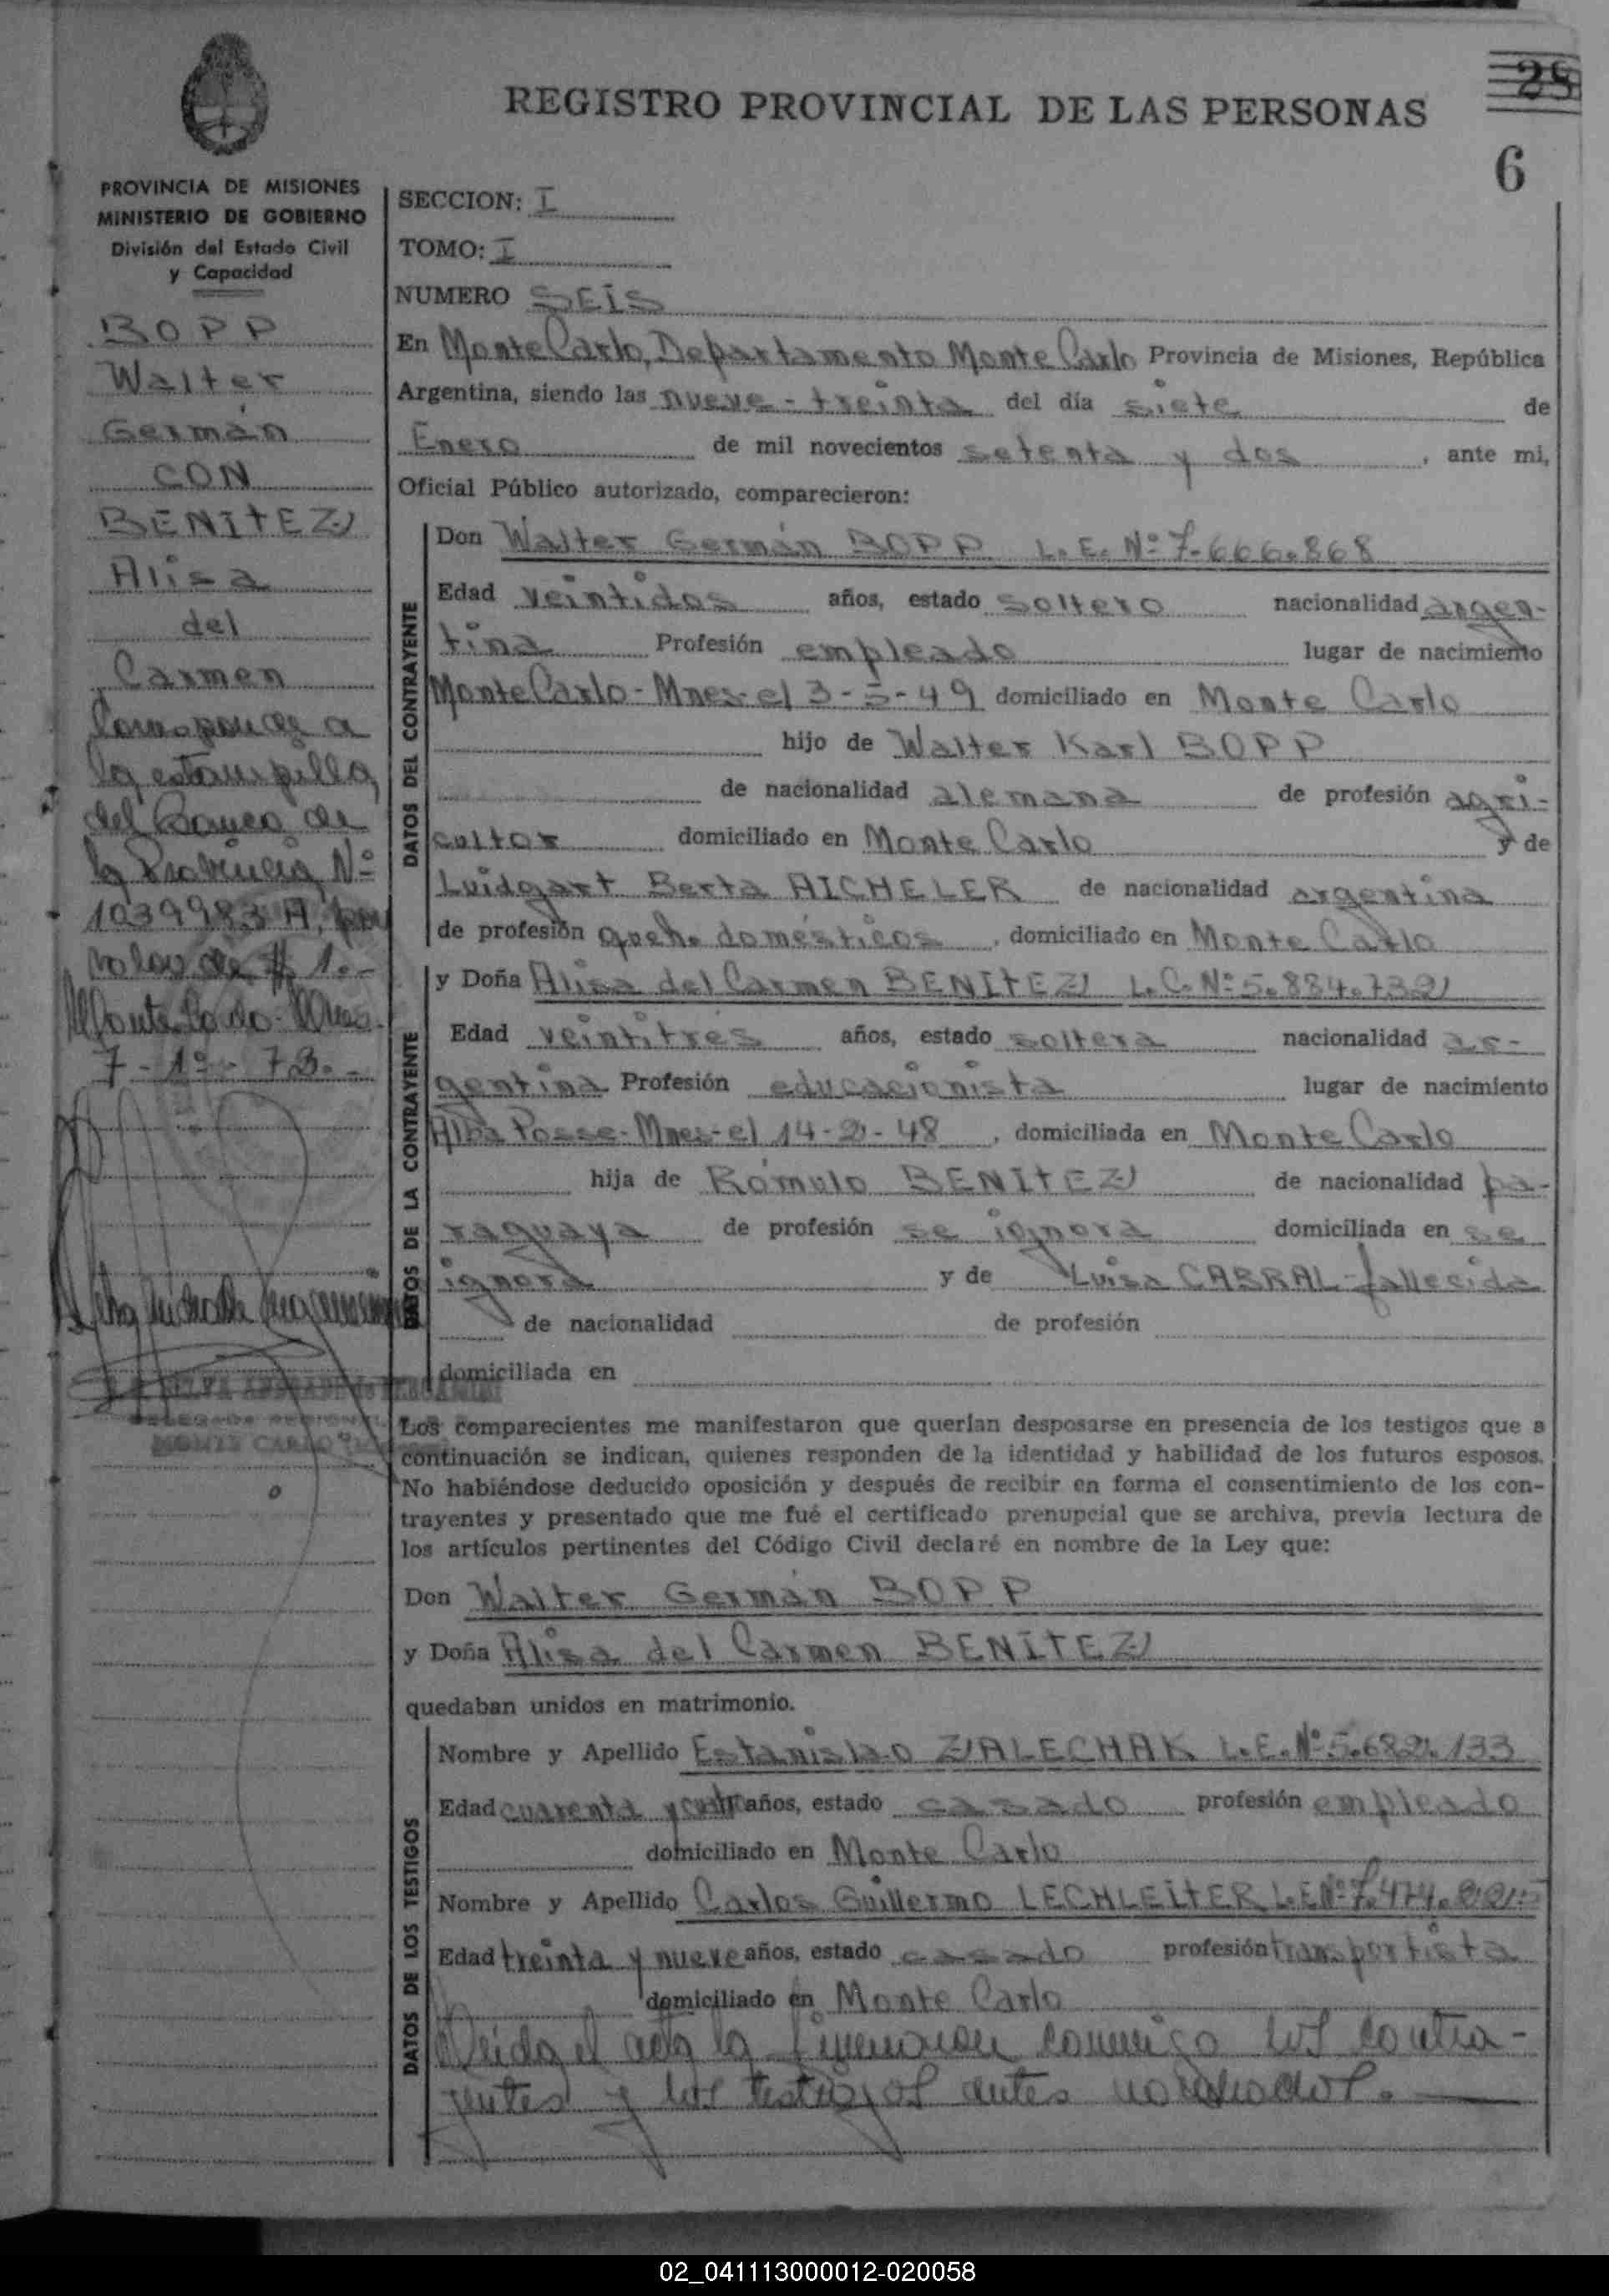 REGISTRO PROVINCIAL DE LAS PERSONAS
28
6
PROVINCIA DE MISIONES
MINISTERIO DE GOBIERNO
División del Estado Civil
y Capacidad
BOPP
Walter
Germán
CON
BENITEZ
Alisa
del
Carmen
Corresponde a
la estampilla
del Banco de
la Provincia Nº
1039983 A, por
valor de $ 1.-
Monte Carlo - Mnes.
7-1º-72.-
MONTE CARLO
SECCION: I
TOMO: I
NUMERO SEIS
En Monte Carlo, Departamento Monte Carlo Provincia de Misiones, República
Argentina, siendo las nueve - treinta del día siete de
Enero de mil novecientos setenta y dos, ante mi,
Oficial Público autorizado, comparecieron:
DATOS DEL CONTRAYENTE
Don Walter Germán BOPP L.E. Nº 7.666.868
Edad veintidos años, estado soltero nacionalidad argen-
tina Profesión empleado lugar de nacimiento
Monte Carlo - Mnes- el 3-5-49 domiciliado en Monte Carlo
hijo de Walter Karl BOPP
de nacionalidad alemana de profesión agri-
cultor domiciliado en Monte Carlo y de
Luidgart Berta AICHELER de nacionalidad argentina
de profesión queh. domésticos, domiciliado en Monte Carlo
DATOS DE LA CONTRAYENTE
y Doña Alisa del Carmen BENITEZ L.C. Nº 5.884.732
Edad veintitres años, estado soltera nacionalidad ar-
gentina Profesión educacionista lugar de nacimiento
Alba Posse - Mnes- el 14-2-48, domiciliada en Monte Carlo
hija de Rómulo BENITEZ de nacionalidad pa-
raguaya de profesión se ignora domiciliada en se
ignora y de Luisa CABRAL - fallecida
de nacionalidad de profesión
domiciliada en
Los comparecientes me manifestaron que querían desposarse en presencia de los testigos que a
continuación se indican, quienes responden de la identidad y habilidad de los futuros esposos.
No habiéndose deducido oposición y después de recibir en forma el consentimiento de los con-
trayentes y presentado que me fué el certificado prenupcial que se archiva, previa lectura de
los artículos pertinentes del Código Civil declaré en nombre de la Ley que:
Don Walter Germán BOPP
y Doña Alisa del Carmen BENITEZ
quedaban unidos en matrimonio.
DATOS DE LOS TESTIGOS
Nombre y Apellido Estanislao ZALECHAK L.E. Nº 5.682.133
Edad cuarenta y años, estado casado profesión empleado
domiciliado en Monte Carlo
Nombre y Apellido Carlos Guillermo LECHLEITER L.E. Nº 7.474.225
Edad treinta y nueve años, estado casado profesión transportista
domiciliado en Monte Carlo
Leida el acta la firmaron conmigo los contra-
yentes y los testigos antes nombrados.
02_041113000012-020058